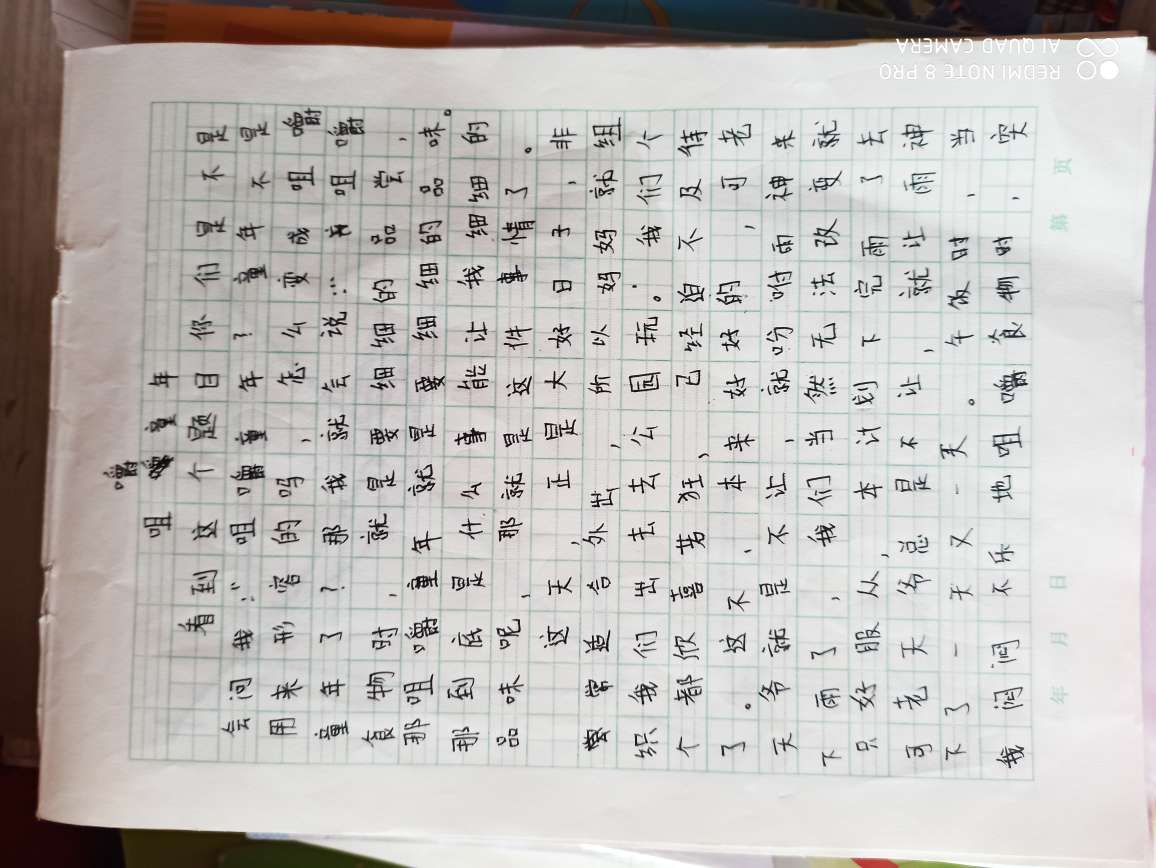 咀嚼童年
看到这个题目你们是不是
会问我:“咀嚼童年?童年不是
用来形容的吗,怎么变成咀嚼
童年了?那我就会说:咀嚼
食物时,就是要细细的品尝,
那咀嚼童年就是要细细的品味。
那到底是什么事能让我细细的
品味呢,那就是这件事情了。
这天,正是大好日子,非
常道告外出,所以妈妈就组
织我们出去去公园玩。我们个
个都欣喜若狂,已经迫不及待
了。这不,本来好好的,可老
天爷就是不让,就吩咐雨神来
下雨了,我们当然无法改变就
只好服从,本计划下完雨了去
可老天爷总是不让,就让雨神
下了一天又一天。午饭时,当
我闷闷不乐地咀嚼食物时,突
年 月 日 第 页
REDMI NOTE 8 PRO
AI QUAD CAMERA